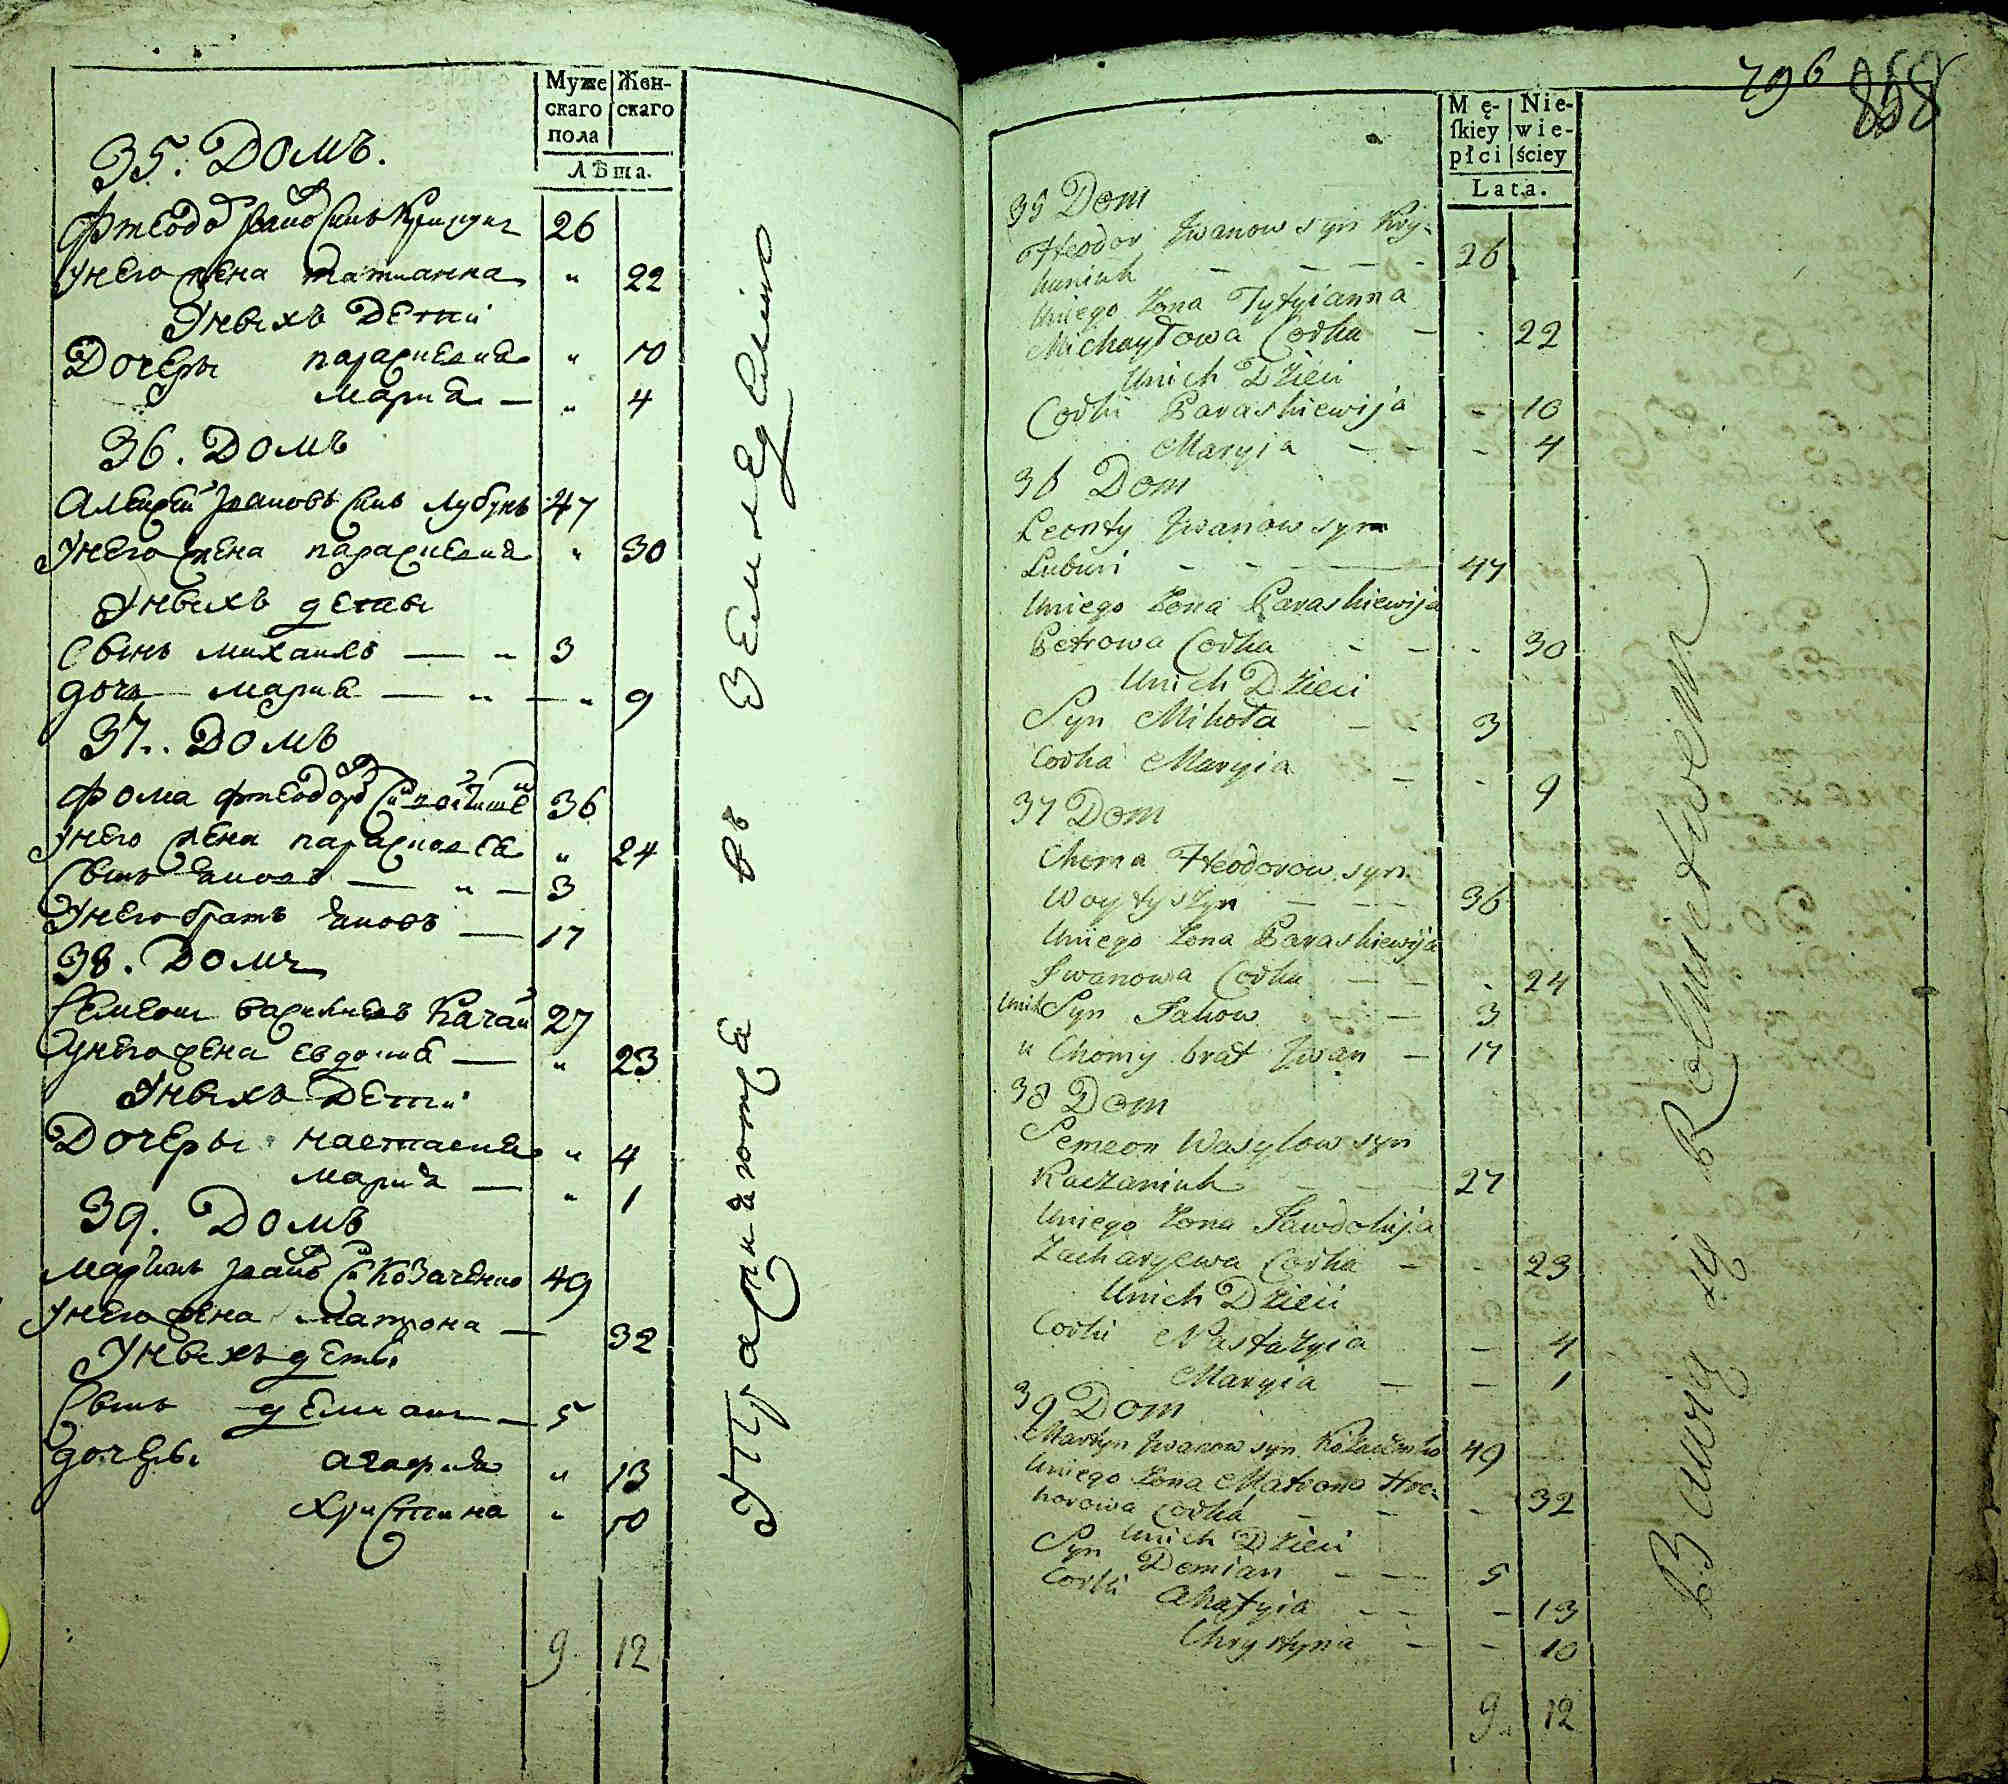 Муже
скаго
пола
Жен-
скаго
Лѣта.
35. Домъ.
Фтеодо Ивано Сынъ 26
Унего жена татианна " 22
Унвихъ Дети
Дочеры параскевиа " 10
Мариа — " 4
36. Домъ
Алексей Ивановъ Синъ Лубунъ 47
Унего жена параскевиа " 30
Унвихъ деты
Сынъ михаилъ — " 3
дочь мариа — " — " 9
37. Домъ
Фома фтеодоро 36
Унего жена параскевеа " 24
Сынъ Яковъ — " — 3
Унего братъ Яковъ — 17
38. Домъ
Семеонъ василиевъ Качан 27
Унего жена евдокиа — " 23
Унвихъ Дети
Дочеры настасиа " 4
мариа — " 1
39. Домъ
Мартинъ Ивано С Козаченко 49
Унего жена матрона — 32
Унвихъ деты
Сынъ демиан — 5
дочеры агафиа " 13
Христина " 10
9 12
Упражняются въ Земледелию
796 858
Mę-
skiey
płci
Nie-
wie-
ściey
Lata.
35 Dom
Fteodor Jwanow syn Kry-
huniuk - - - - 26
Uniego Zona Tytyianna
Michayłowa Corka - - 22
Unich Dzieci
Corki Paraskiewija - 10
Maryia - - - 4
36 Dom
Leonty Jwanow syn
Lubun - - - 47
Uniego Zona Paraskiewija
Petrowa Corka - - - 30
Unich Dzieci
Syn Mikoła - - 3
Corka Maryia - - 9
37 Dom
Choma Fteodorow syn
Woytyszyn - - - 36
Uniego Zona Paraskiewija
Jwanowa Corka - - - 24
Unich Syn Jakow - - 3
u Chomy brat Jwan - 17
38 Dom
Semeon Wasylow syn
Kaczaniuk - - - 27
Uniego Zona Jawdokija
Zacharyewa Corka - - 23
Unich Dzieci
Corki Nastazyia - 4
Maryia - - 1
39 Dom
Martyn Jwanow syn Kozaczenko 49
Uniego Zona Matrona Hre-
horowa Corka - - - 32
Unich Dzieci
Syn Demian - - 5
Corki Ahafyia - - - 13
Chrystyna - - 10
9 12
Bawią się Rolnictwem